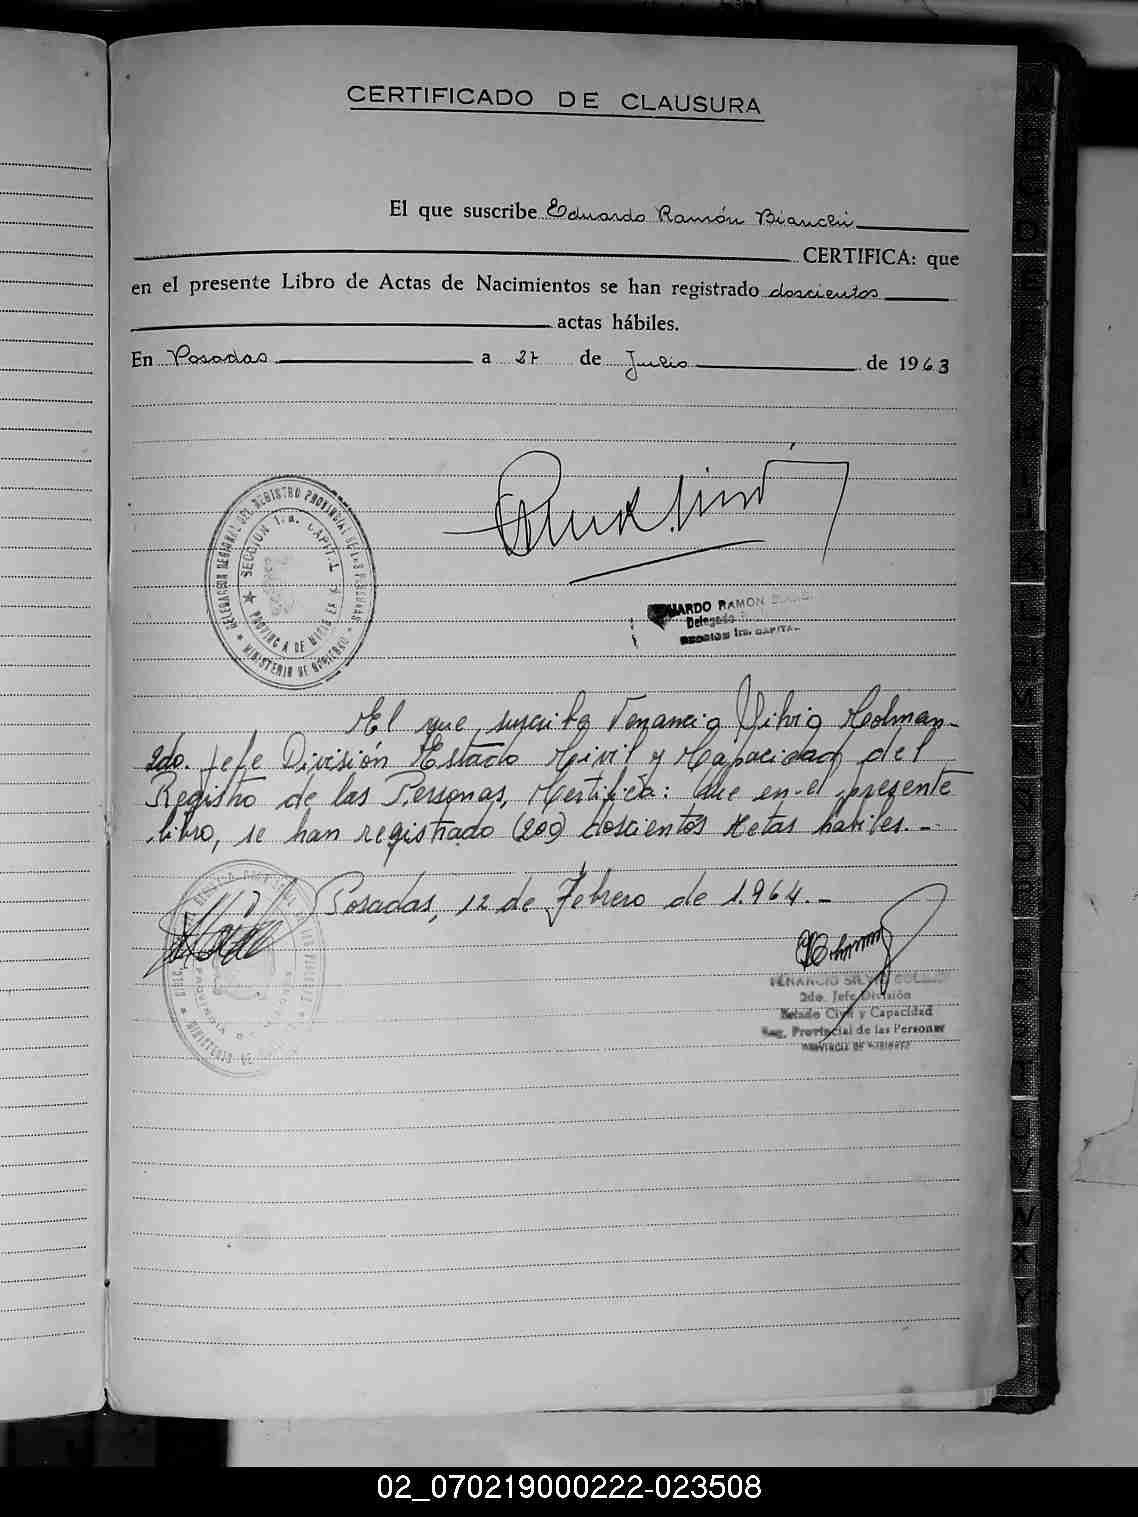 CERTIFICADO DE CLAUSURA
El que suscribe Eduardo Ramón Bianchi
CERTIFICA: que
en el presente Libro de Actas de Nacimientos se han registrado doscientos
actas hábiles.
En Posadas a 27 de Julio de 1963
DELEGACION REGIONAL DEL REGISTRO PROVINCIAL DE LAS PERSONAS
SECCION 1ra. CAPITAL
PROVINCIA DE MISIONES
MINISTERIO DE GOBIERNO
EDUARDO RAMON BIANCHI
Delegado
SECCION 1ra. CAPITAL
El que suscribe Venancio Silvio Colman
2do. Jefe División Estado Civil y Capacidad del
Registro de las Personas, Certifica: Que en el presente
libro, se han registrado (200) doscientos Actas habiles.-
Posadas, 12 de Febrero de 1.964.-
VENANCIO SILVIO COLMAN
2do. Jefe División
Estado Civil y Capacidad
Reg. Provincial de las Personas
PROVINCIA DE MISIONES
02_070219000222-023508